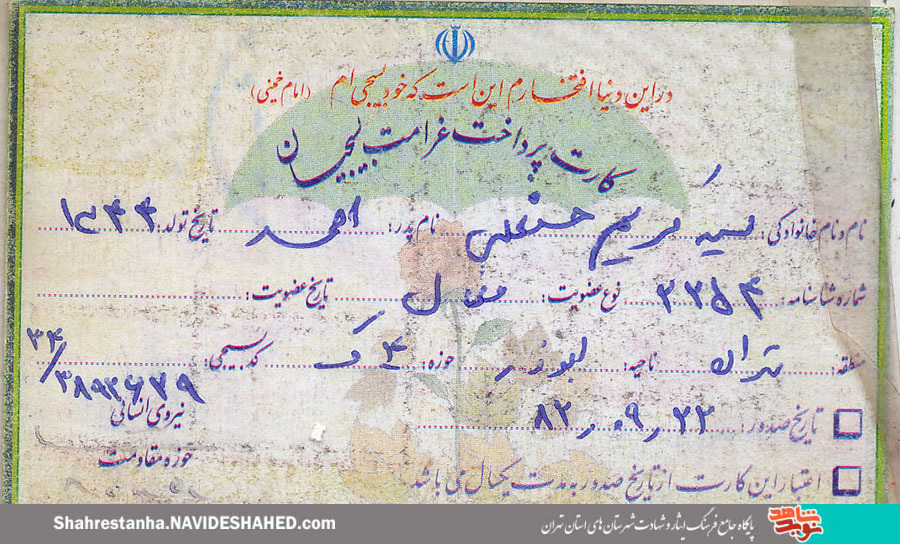 در این دنیا افتخارم این است که خود بسیجی ام (امام خمینی)
کارت پرداخت غرامت بسیجیان
نام و نام خانوادگی: سید کریم حسنعلی نام پدر: احمد تاریخ تولد: ۱۳۴۴
شماره شناسنامه: ۲۲۵۴ نوع عضویت: فعال تاریخ عضویت:
منطقه: تهران ناحیه: ابوذر حوزه: کد بسیجی: ۳۴/۳۸۹۲۶۷۹
تاریخ صدور: ۸۲,۰۹,۲۲
نیروی انسانی
اعتبار این کارت از تاریخ صدور به مدت یکسال می باشد
حوزه مقاومت
Shahrestanha.NAVIDESHAHED.com
پایگاه جامع فرهنگ ایثار و شهادت شهرستان های استان تهران
نوید شاهد